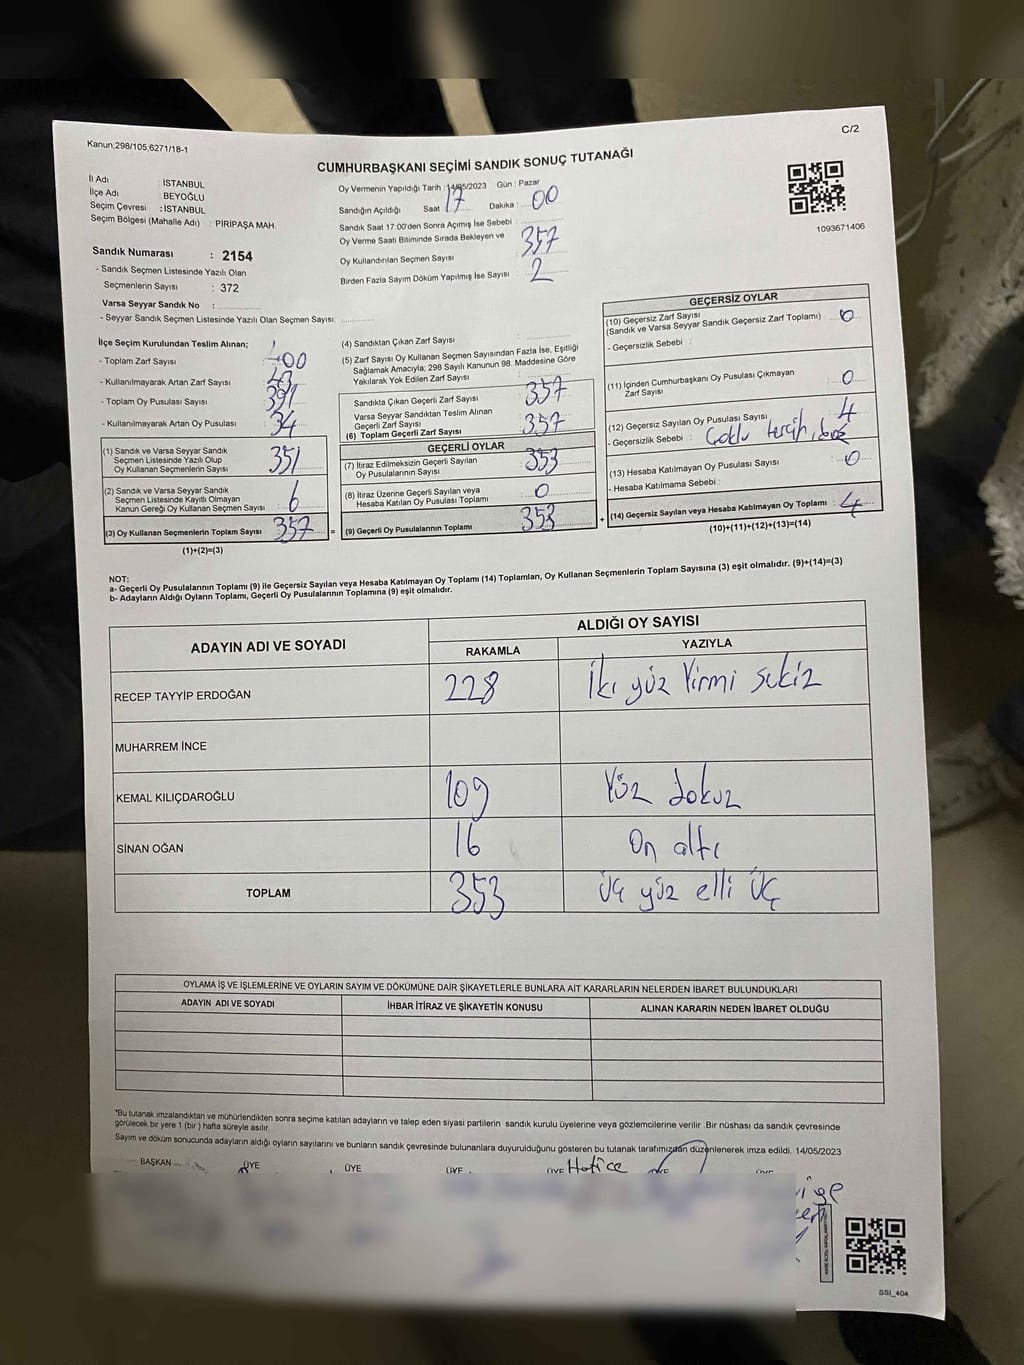 Kanun,298/105,6271/18-1
C/2
CUMHURBAŞKANI SEÇİMİ SANDIK SONUÇ TUTANAĞI
İl Adı : İSTANBUL
İlçe Adı : BEYOĞLU
Seçim Çevresi : İSTANBUL
Seçim Bölgesi (Mahalle Adı) : PİRİPAŞA MAH.
Sandık Numarası : 2154
- Sandık Seçmen Listesinde Yazılı Olan
Seçmenlerin Sayısı : 372
Varsa Seyyar Sandık No :
- Seyyar Sandık Seçmen Listesinde Yazılı Olan Seçmen Sayısı:
Oy Vermenin Yapıldığı Tarih : 14/05/2023 Gün : Pazar
Sandığın Açıldığı Saat : 17 Dakika : 00
Sandık Saat 17.00'den Sonra Açımış İse Sebebi :
Oy Verme Saati Bitiminde Sırada Bekleyen ve
Oy Kullandırılan Seçmen Sayısı : 357
Birden Fazla Sayım Döküm Yapılmış İse Sayısı : 2
1093671406
İlçe Seçim Kurulundan Teslim Alınan;
- Toplam Zarf Sayısı : 400
- Kullanılmayarak Artan Zarf Sayısı : 43
- Toplam Oy Pusulası Sayısı : 391
- Kullanılmayarak Artan Oy Pusulası : 34
(1) Sandık ve Varsa Seyyar Sandık
Seçmen Listesinde Yazılı Olup
Oy Kullanan Seçmenlerin Sayısı : 351
(2) Sandık ve Varsa Seyyar Sandık
Seçmen Listesinde Kayıtlı Olmayan
Kanun Gereği Oy Kullanan Seçmen Sayısı : 6
(3) Oy Kullanan Seçmenlerin Toplam Sayısı : 357
(1)+(2)=(3)
=
(4) Sandıktan Çıkan Zarf Sayısı :
(5) Zarf Sayısı Oy Kullanan Seçmen Sayısından Fazla İse, Eşitliği
Sağlamak Amacıyla; 298 Sayılı Kanunun 98. Maddesine Göre
Yakılarak Yok Edilen Zarf Sayısı :
Sandıkta Çıkan Geçerli Zarf Sayısı : 357
Varsa Seyyar Sandıktan Teslim Alınan
Geçerli Zarf Sayısı :
(6) Toplam Geçerli Zarf Sayısı : 357
GEÇERLİ OYLAR
(7) İtiraz Edilmeksizin Geçerli Sayılan
Oy Pusulalarının Sayısı : 353
(8) İtiraz Üzerine Geçerli Sayılan veya
Hesaba Katılan Oy Pusulası Toplamı : 0
(9) Geçerli Oy Pusulalarının Toplamı : 353
+
GEÇERSİZ OYLAR
(10) Geçersiz Zarf Sayısı
(Sandık ve Varsa Seyyar Sandık Geçersiz Zarf Toplamı) : 0
- Geçersizlik Sebebi :
(11) İçinden Cumhurbaşkanı Oy Pusulası Çıkmayan
Zarf Sayısı : 0
(12) Geçersiz Sayılan Oy Pusulası Sayısı : 4
- Geçersizlik Sebebi : Çoklu tercih, boş
(13) Hesaba Katılmayan Oy Pusulası Sayısı : 0
- Hesaba Katılmama Sebebi :
(14) Geçersiz Sayılan veya Hesaba Katılmayan Oy Toplamı : 4
(10)+(11)+(12)+(13)=(14)
NOT:
a- Geçerli Oy Pusulalarının Toplamı (9) ile Geçersiz Sayılan veya Hesaba Katılmayan Oy Toplamı (14) Toplamları, Oy Kullanan Seçmenlerin Toplam Sayısına (3) eşit olmalıdır. (9)+(14)=(3)
b- Adayların Aldığı Oyların Toplamı, Geçerli Oy Pusulalarının Toplamına (9) eşit olmalıdır.
ADAYIN ADI VE SOYADI ALDIĞI OY SAYISI
RAKAMLA YAZIYLA
RECEP TAYYİP ERDOĞAN 228 İki yüz Yirmi sekiz
MUHARREM İNCE
KEMAL KILIÇDAROĞLU 109 Yüz dokuz
SİNAN OĞAN 16 On altı
TOPLAM 353 Üç yüz elli Üç
OYLAMA İŞ VE İŞLEMLERİNE VE OYLARIN SAYIM VE DÖKÜMÜNE DAİR ŞİKAYETLERLE BUNLARA AİT KARARLARIN NELERDEN İBARET BULUNDUKLARI
ADAYIN ADI VE SOYADI İHBAR İTİRAZ VE ŞİKAYETİN KONUSU ALINAN KARARIN NEDEN İBARET OLDUĞU
*Bu tutanak imzalandıktan ve mühürlendikten sonra seçime katılan adayların ve talep eden siyasi partilerin sandık kurulu üyelerine veya gözlemcilerine verilir .Bir nüshası da sandık çevresinde
görülecek bir yere 1 (bir ) hafta süreyle asılır.
Sayım ve döküm sonucunda adayların aldığı oyların sayılarını ve bunların sandık çevresinde bulunanlara duyurulduğunu gösteren bu tutanak tarafımızdan düzenlenerek imza edildi. 14/05/2023
BAŞKAN ÜYE ÜYE ÜYE ÜYE ÜYE ÜYE
Hatice
SSI_404